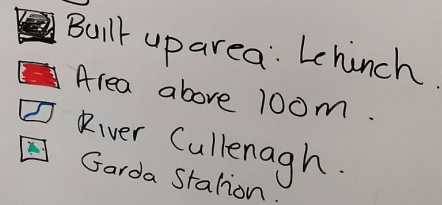 Built up area: Lehinch.
Area above 100m.
River Cullenagh.
Garda Station.